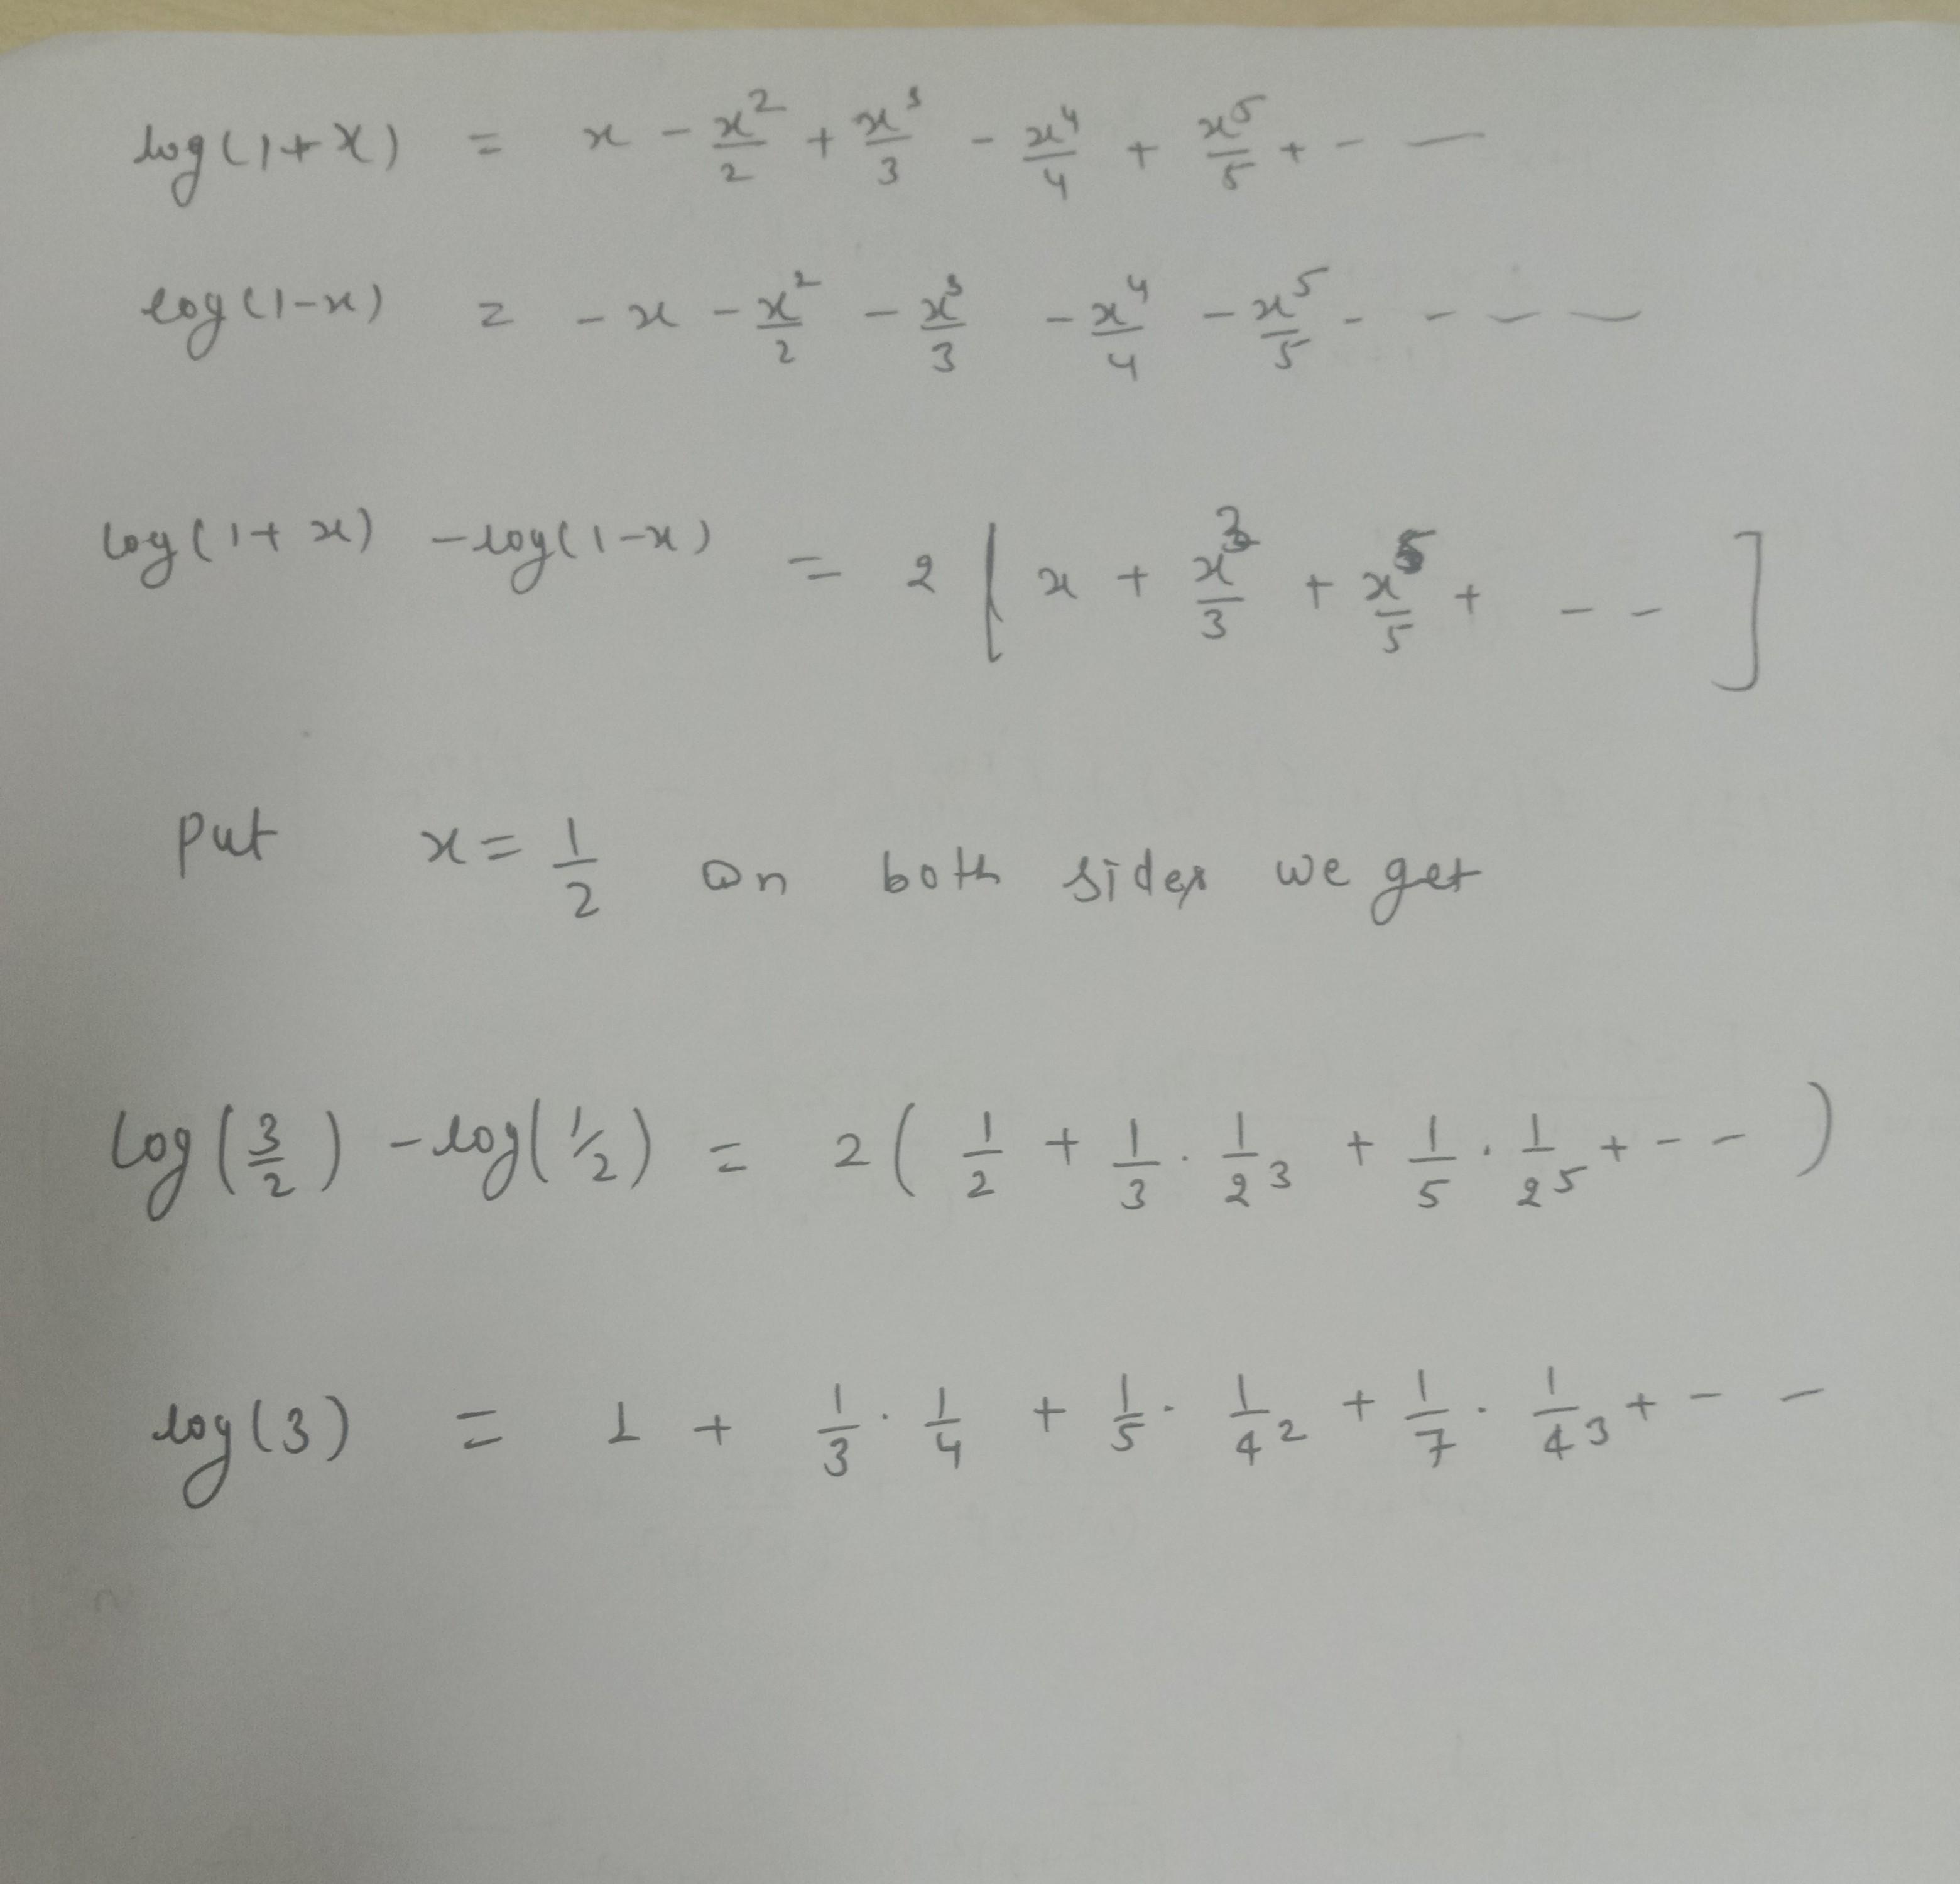 log(1+x) = x - x²/2 + x³/3 - x⁴/4 + x⁵/5 + - —
log(1-x) = -x - x²/2 - x³/3 - x⁴/4 - x⁵/5 - - — —
log(1+x) - log(1-x) = 2[x + x³/3 + x⁵/5 + - - ]
put x = 1/2 on both sides we get
log(3/2) - log(1/2) = 2(1/2 + 1/3 · 1/2³ + 1/5 · 1/2⁵ + - - )
log(3) = 1 + 1/3 · 1/4 + 1/5 · 1/4² + 1/7 · 1/4³ + - -